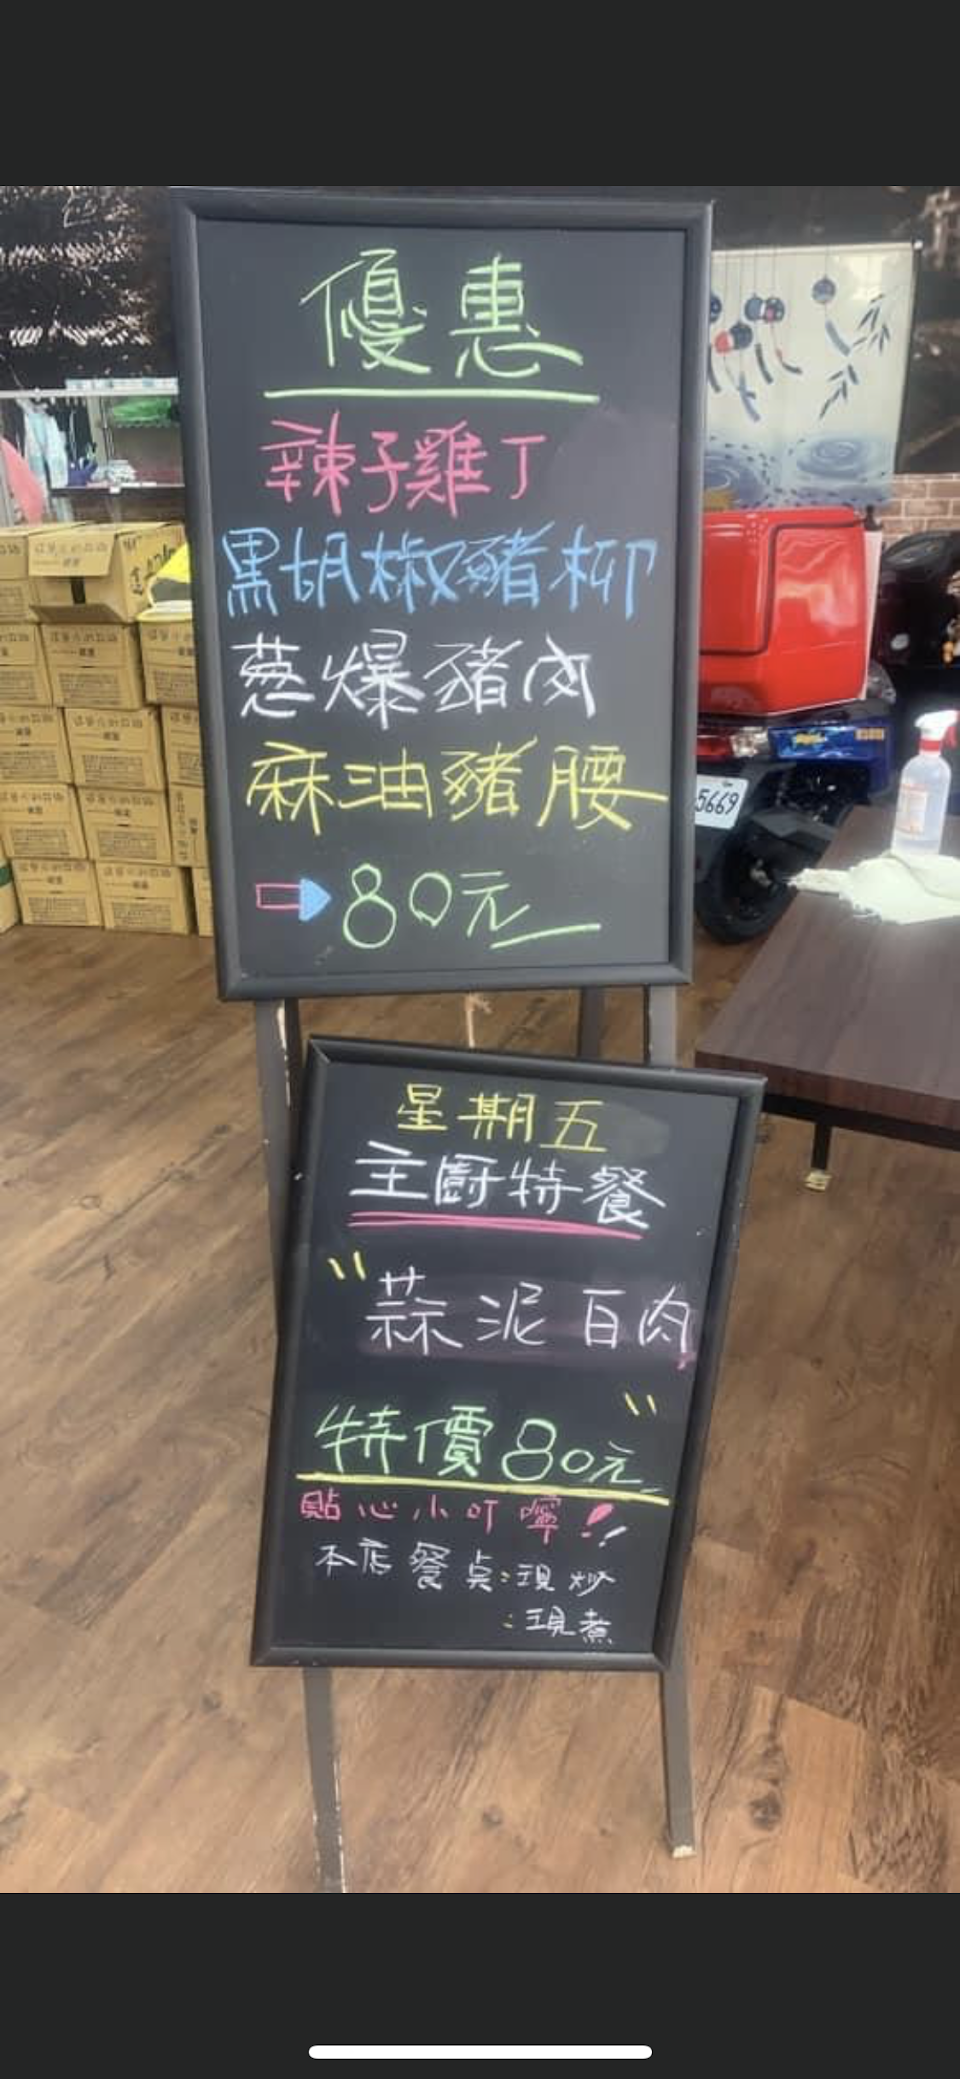 優惠
辣子雞丁
黑胡椒豬柳
蔥爆豬肉
麻油豬腰
80元
5669
星期五
主廚特餐
"蒜泥白肉"
特價80元
貼心小叮嚀!!
本店餐点:現炒
:現煮